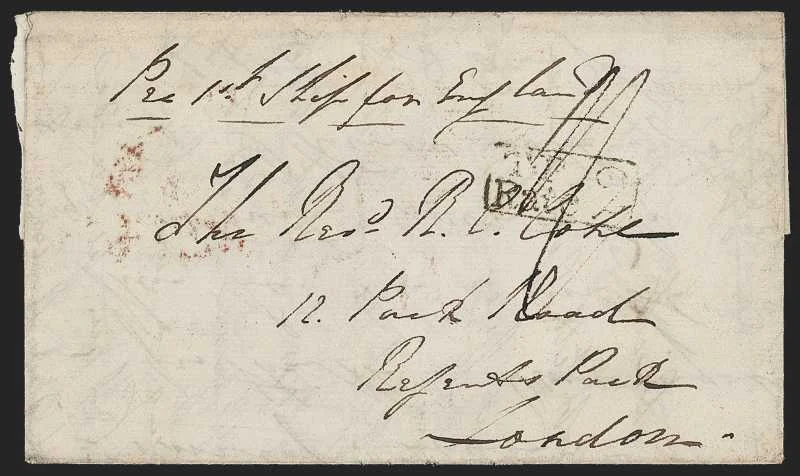 Per 1st Ship for England
T.P
Rate
The Revd. R. C. Coxe
12. Park Road
Regents Park
London